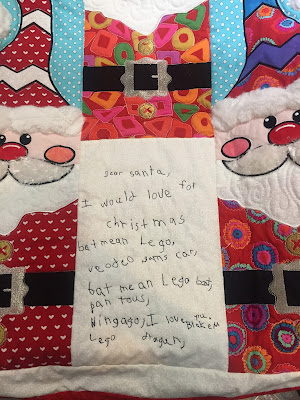 Dear santa,
I would love for
christmas
batmean Lego,
veodeo gams car,
bat mean Lego bat,
pan tous,
Ningago, I love you.
Lego dragan,